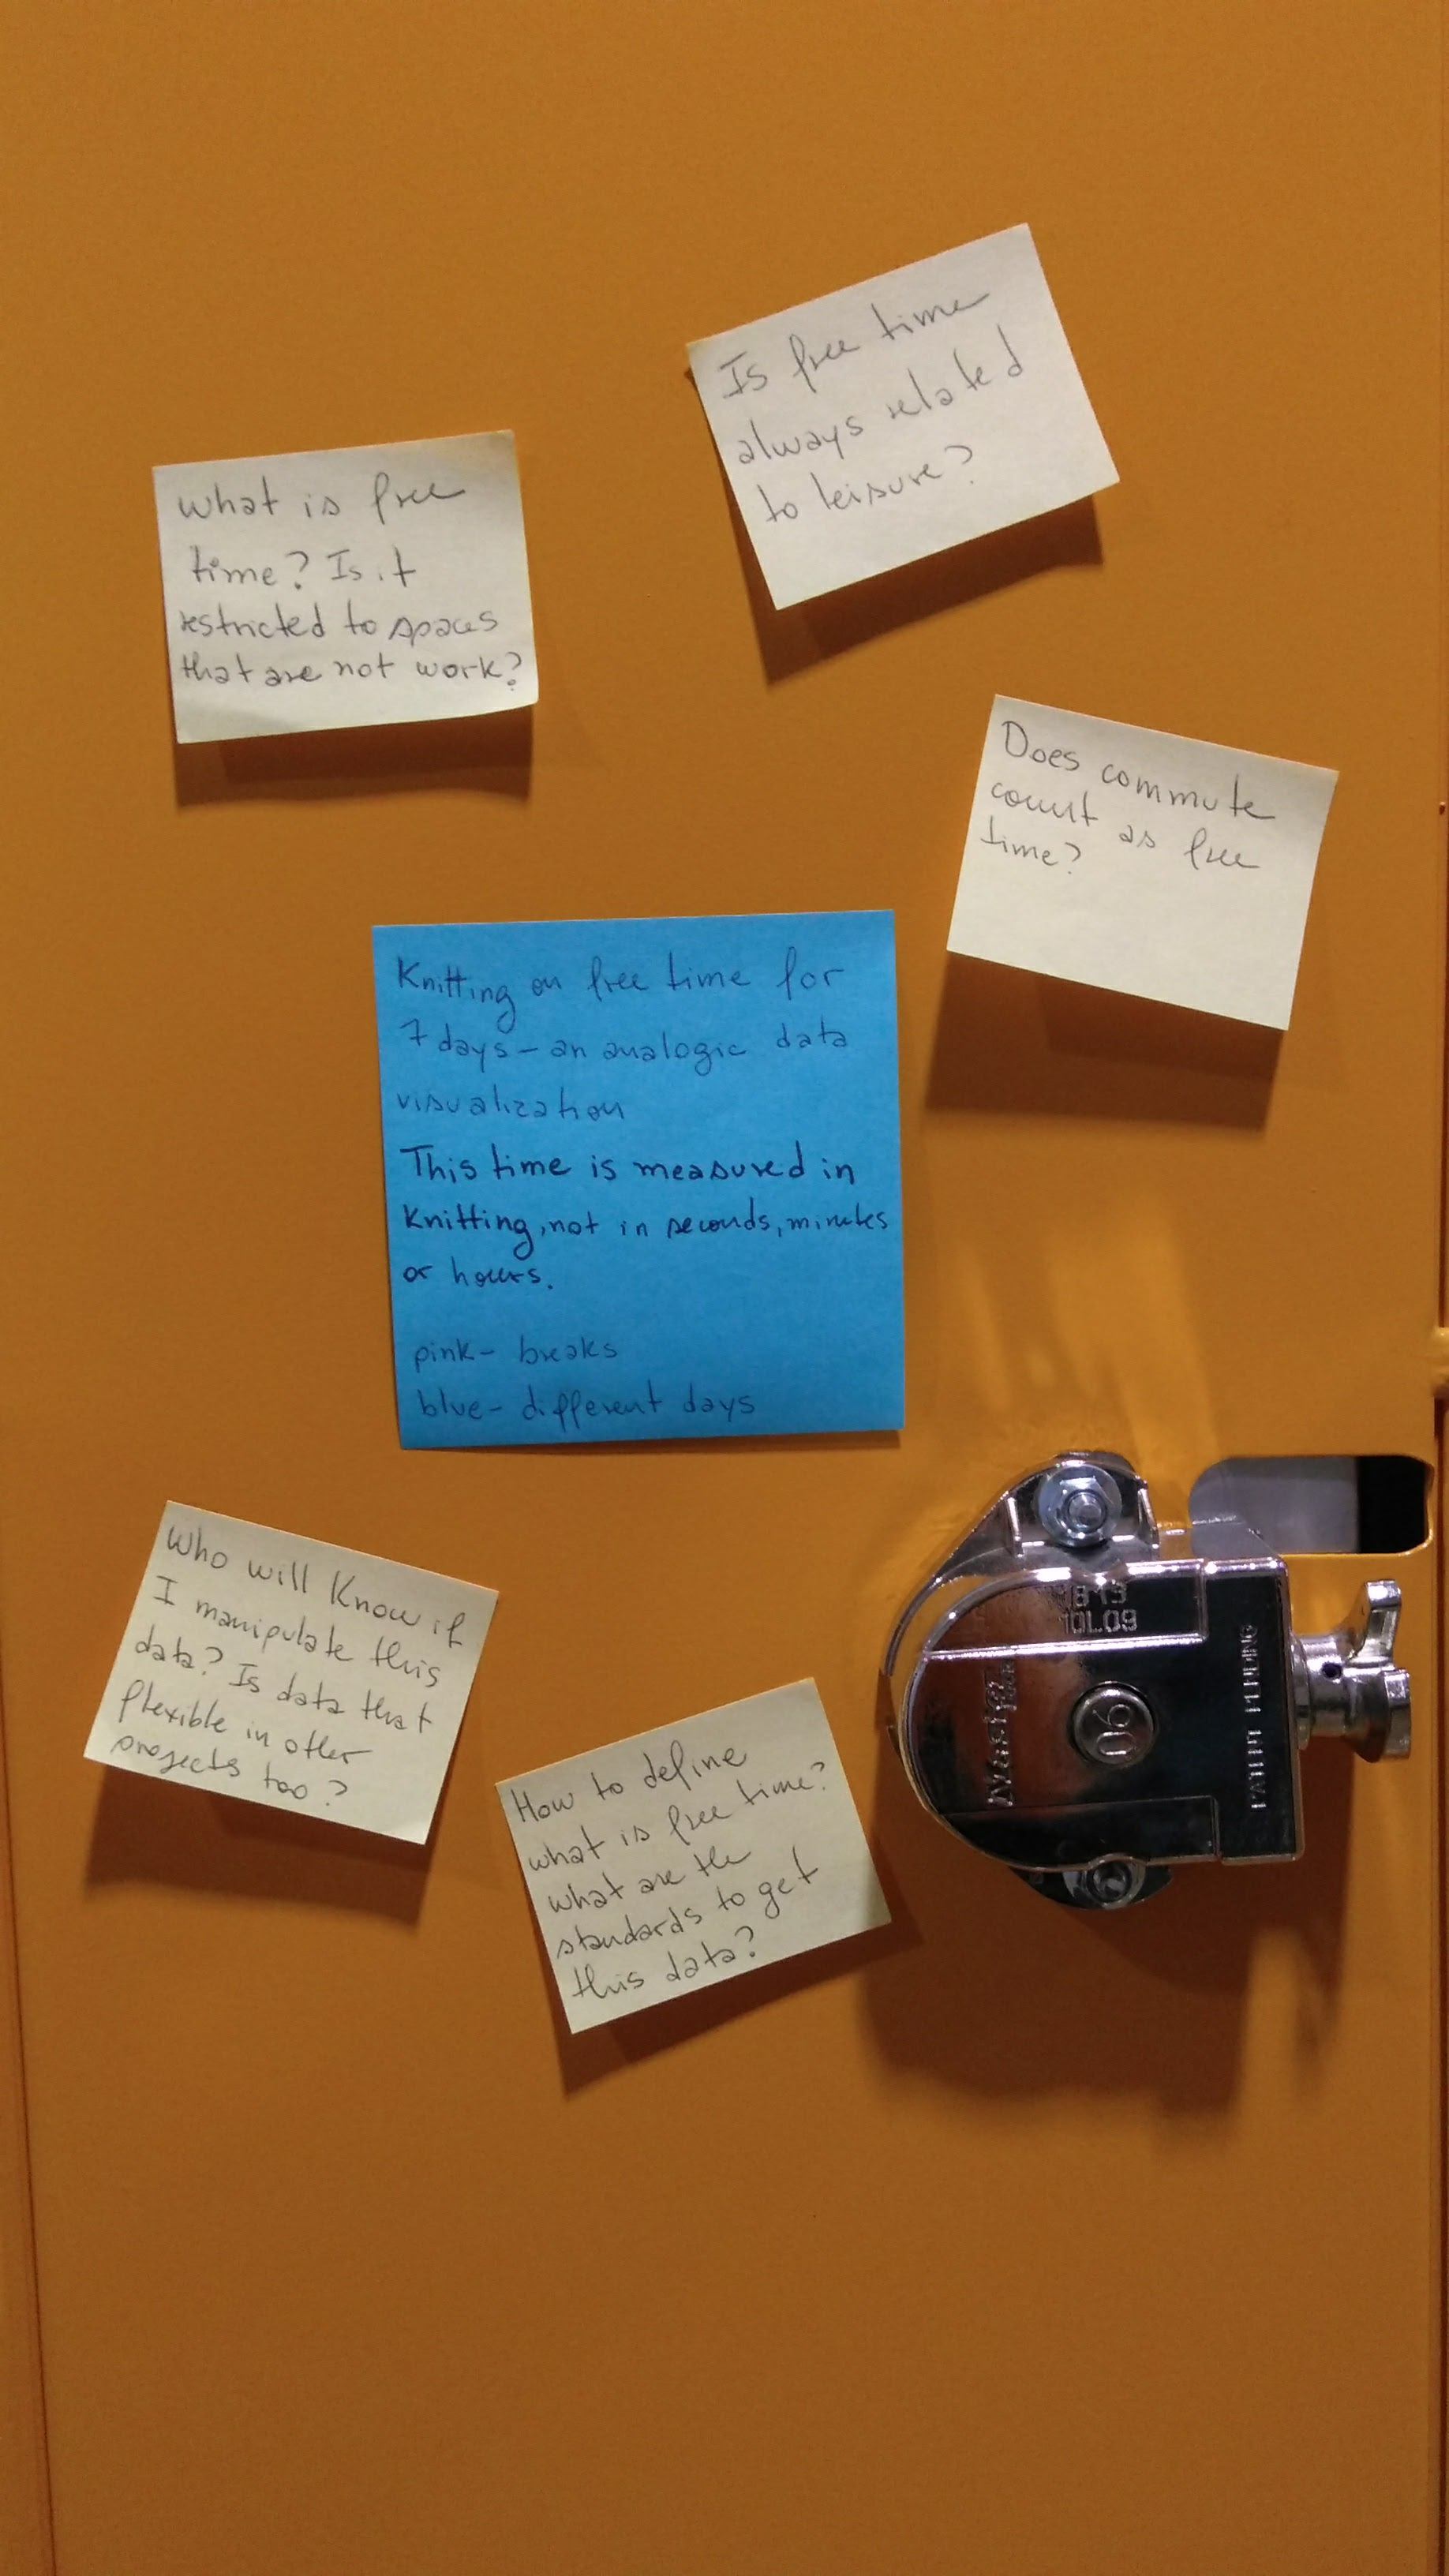 Is free time
always related
to leisure?
What is free
time? Is it
restricted to spaces
that are not work?
Does commute
count as free
time?
Knitting on free time for
7 days - an analogic data
visualization
This time is measured in
knitting, not in seconds, minutes
or hours.
pink - breaks
blue - different days
Who will know if
I manipulate this
data? Is data that
flexible in other
projects too?
How to define
what is free time?
what are the
standards to get
this data?
1873
10L09
Master
06
PATENT PENDING